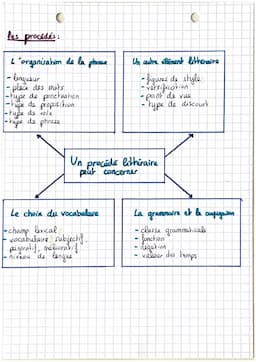 Les procédés :
L'organisation de la phrase
- longueur
- place des mots
- type de ponctuation
- type de proposition
- type de
- type de phrase
Un autre élément littéraire
- figures de style
- versification
- point de vue
- type de discours
Un procédé littéraire
peut concerner
Le choix du vocabulaire
- champ lexical
- vocabulaire subjectif,
péjoratif, mélioratif
- niveau de langue
La grammaire et la conjugaison
- classe grammaticale
- fonction
- négation
- valeur des temps